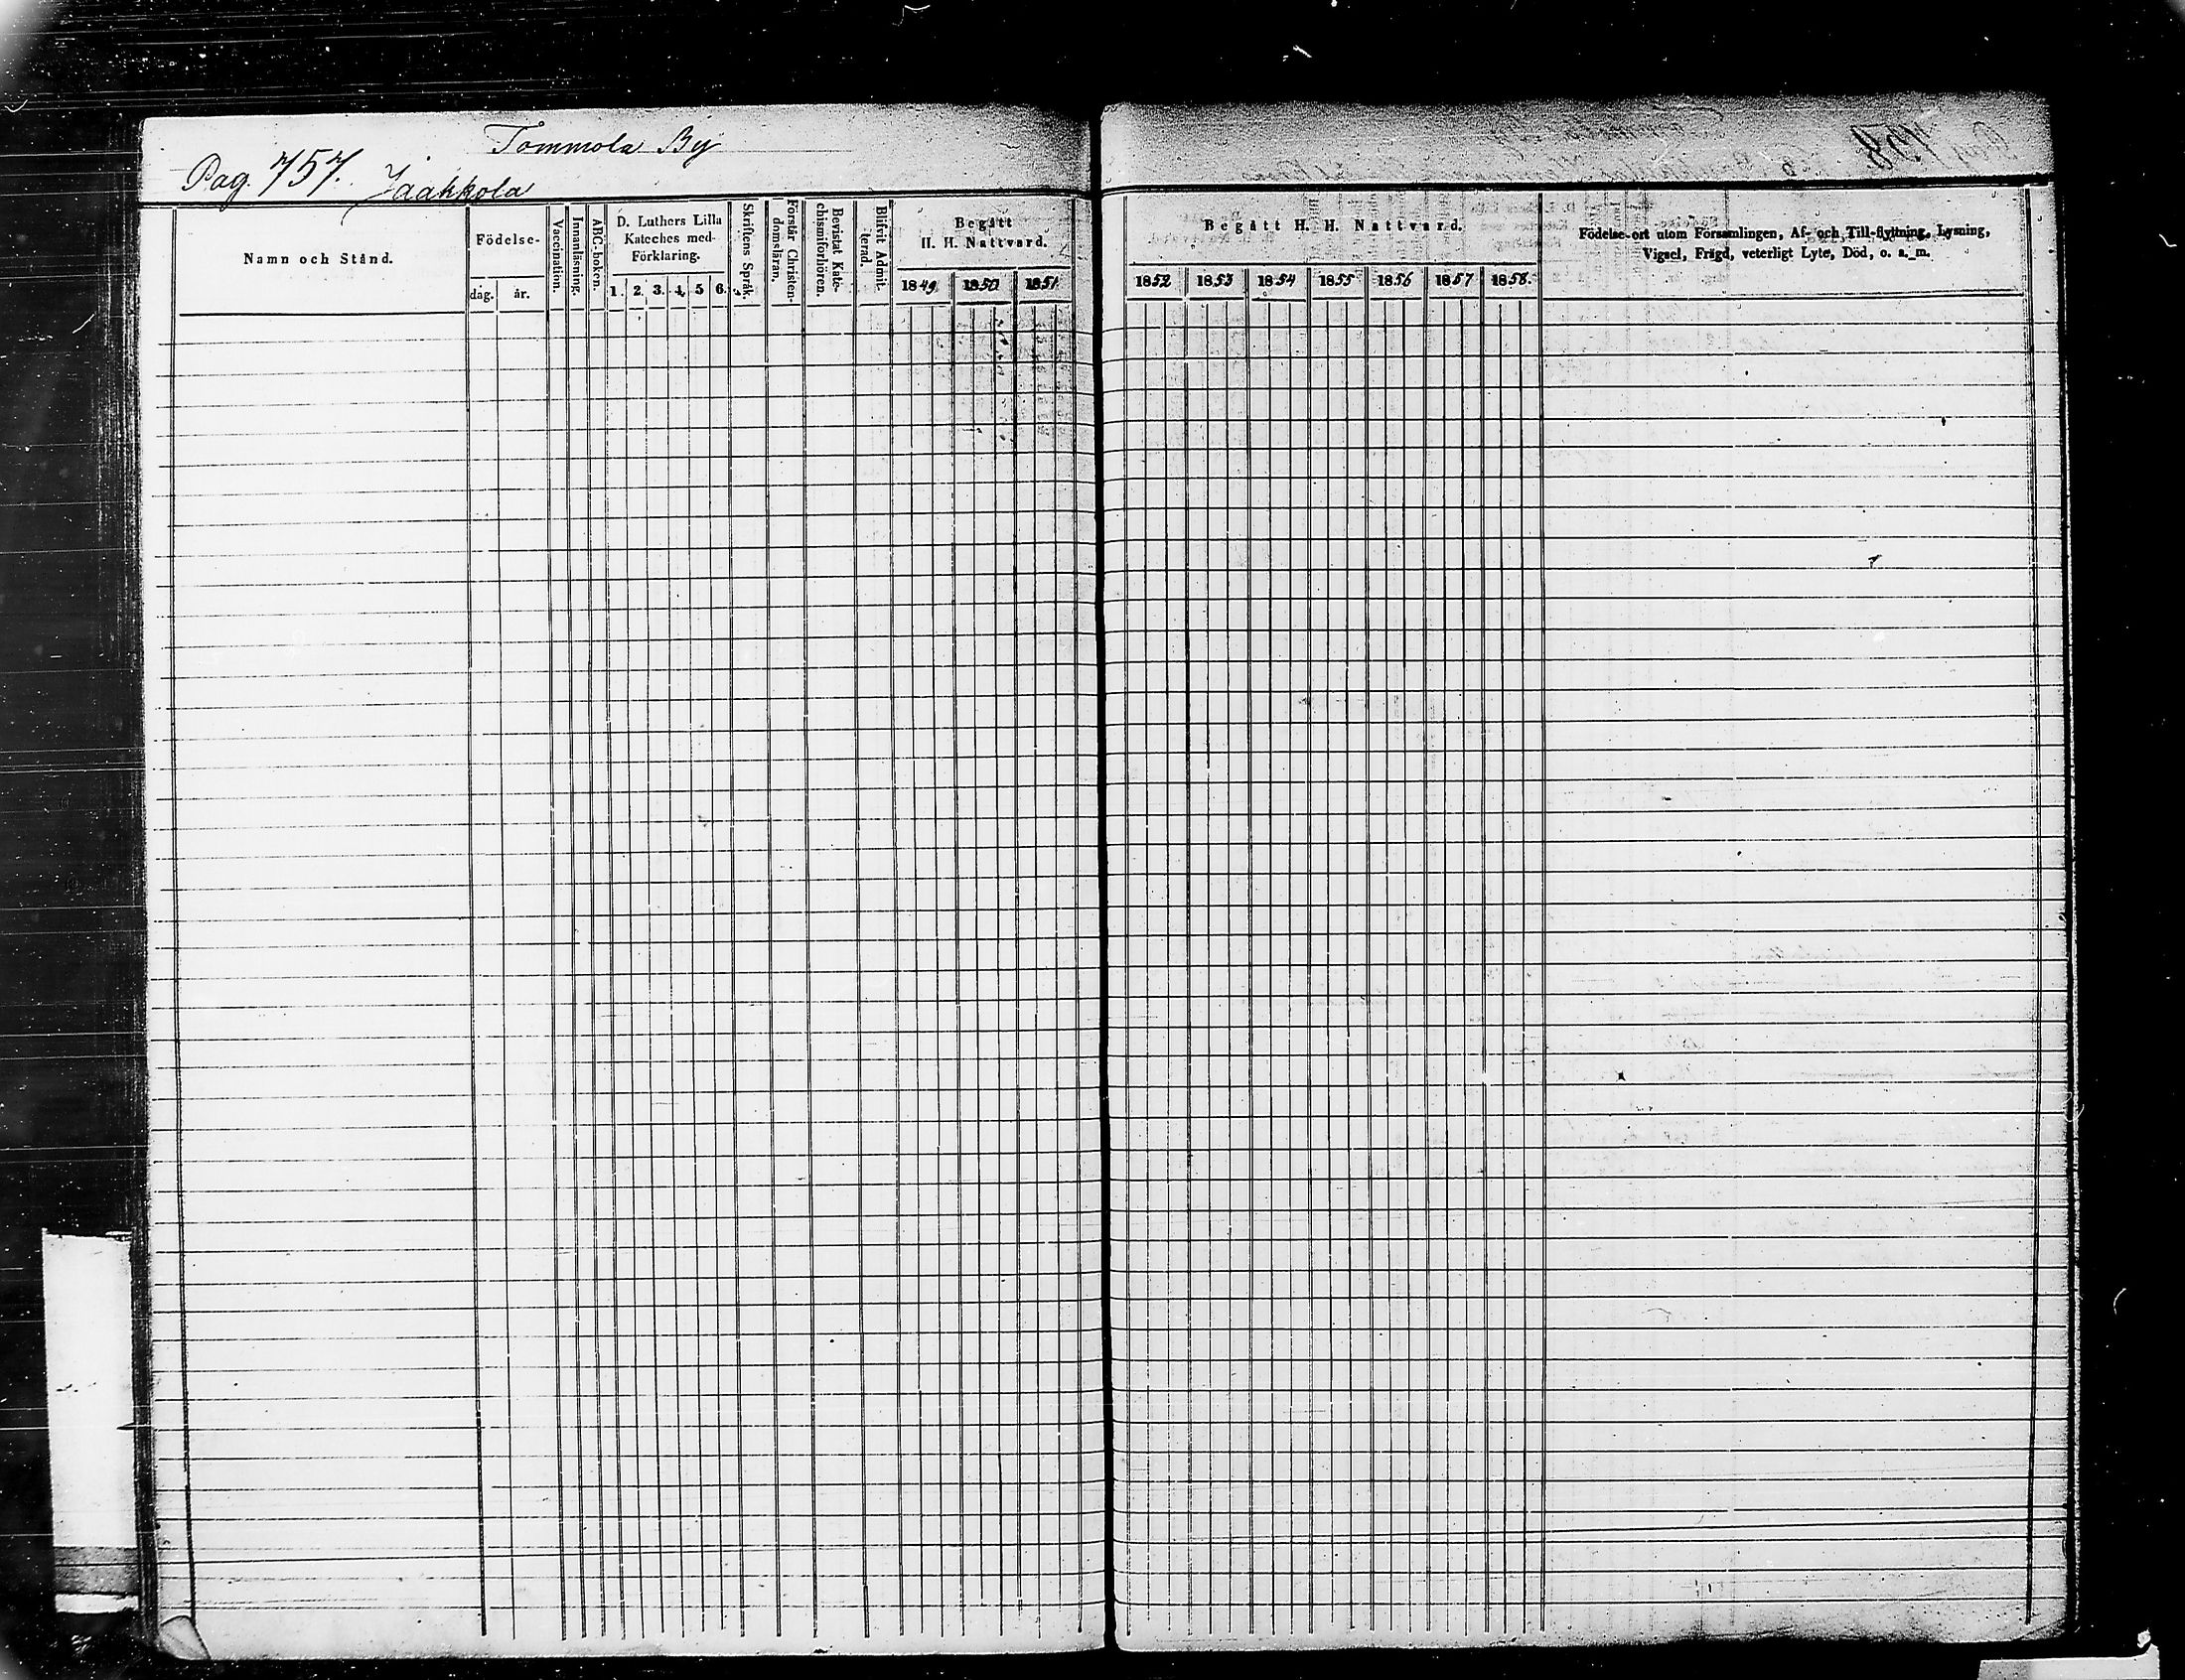 Tommola By
Pag. 757. Jaakkola
Namn och Stånd.
Födelse-
dag. år.
Vaccination.
Innanläsning.
ABC-boken.
D. Luthers Lilla
Kateches med
Förklaring.
1. 2. 3. 4. 5 6.
Skriftens Språk.
Förstår Christen-
domsläran.
Bevistat Kate-
chismiförhören.
Blifvit Admit-
terad.
Begått
H. H. Nattvard.
1849 1850 1851
Begått H. H. Nattvard.
1852 1853 1854 1855 1856 1857 1858.
Födelse-ort utom Församlingen, Af- och Till-flyttning, Lysning,
Vigsel, Frägd, veterligt Lyte, Död, o. s. m.